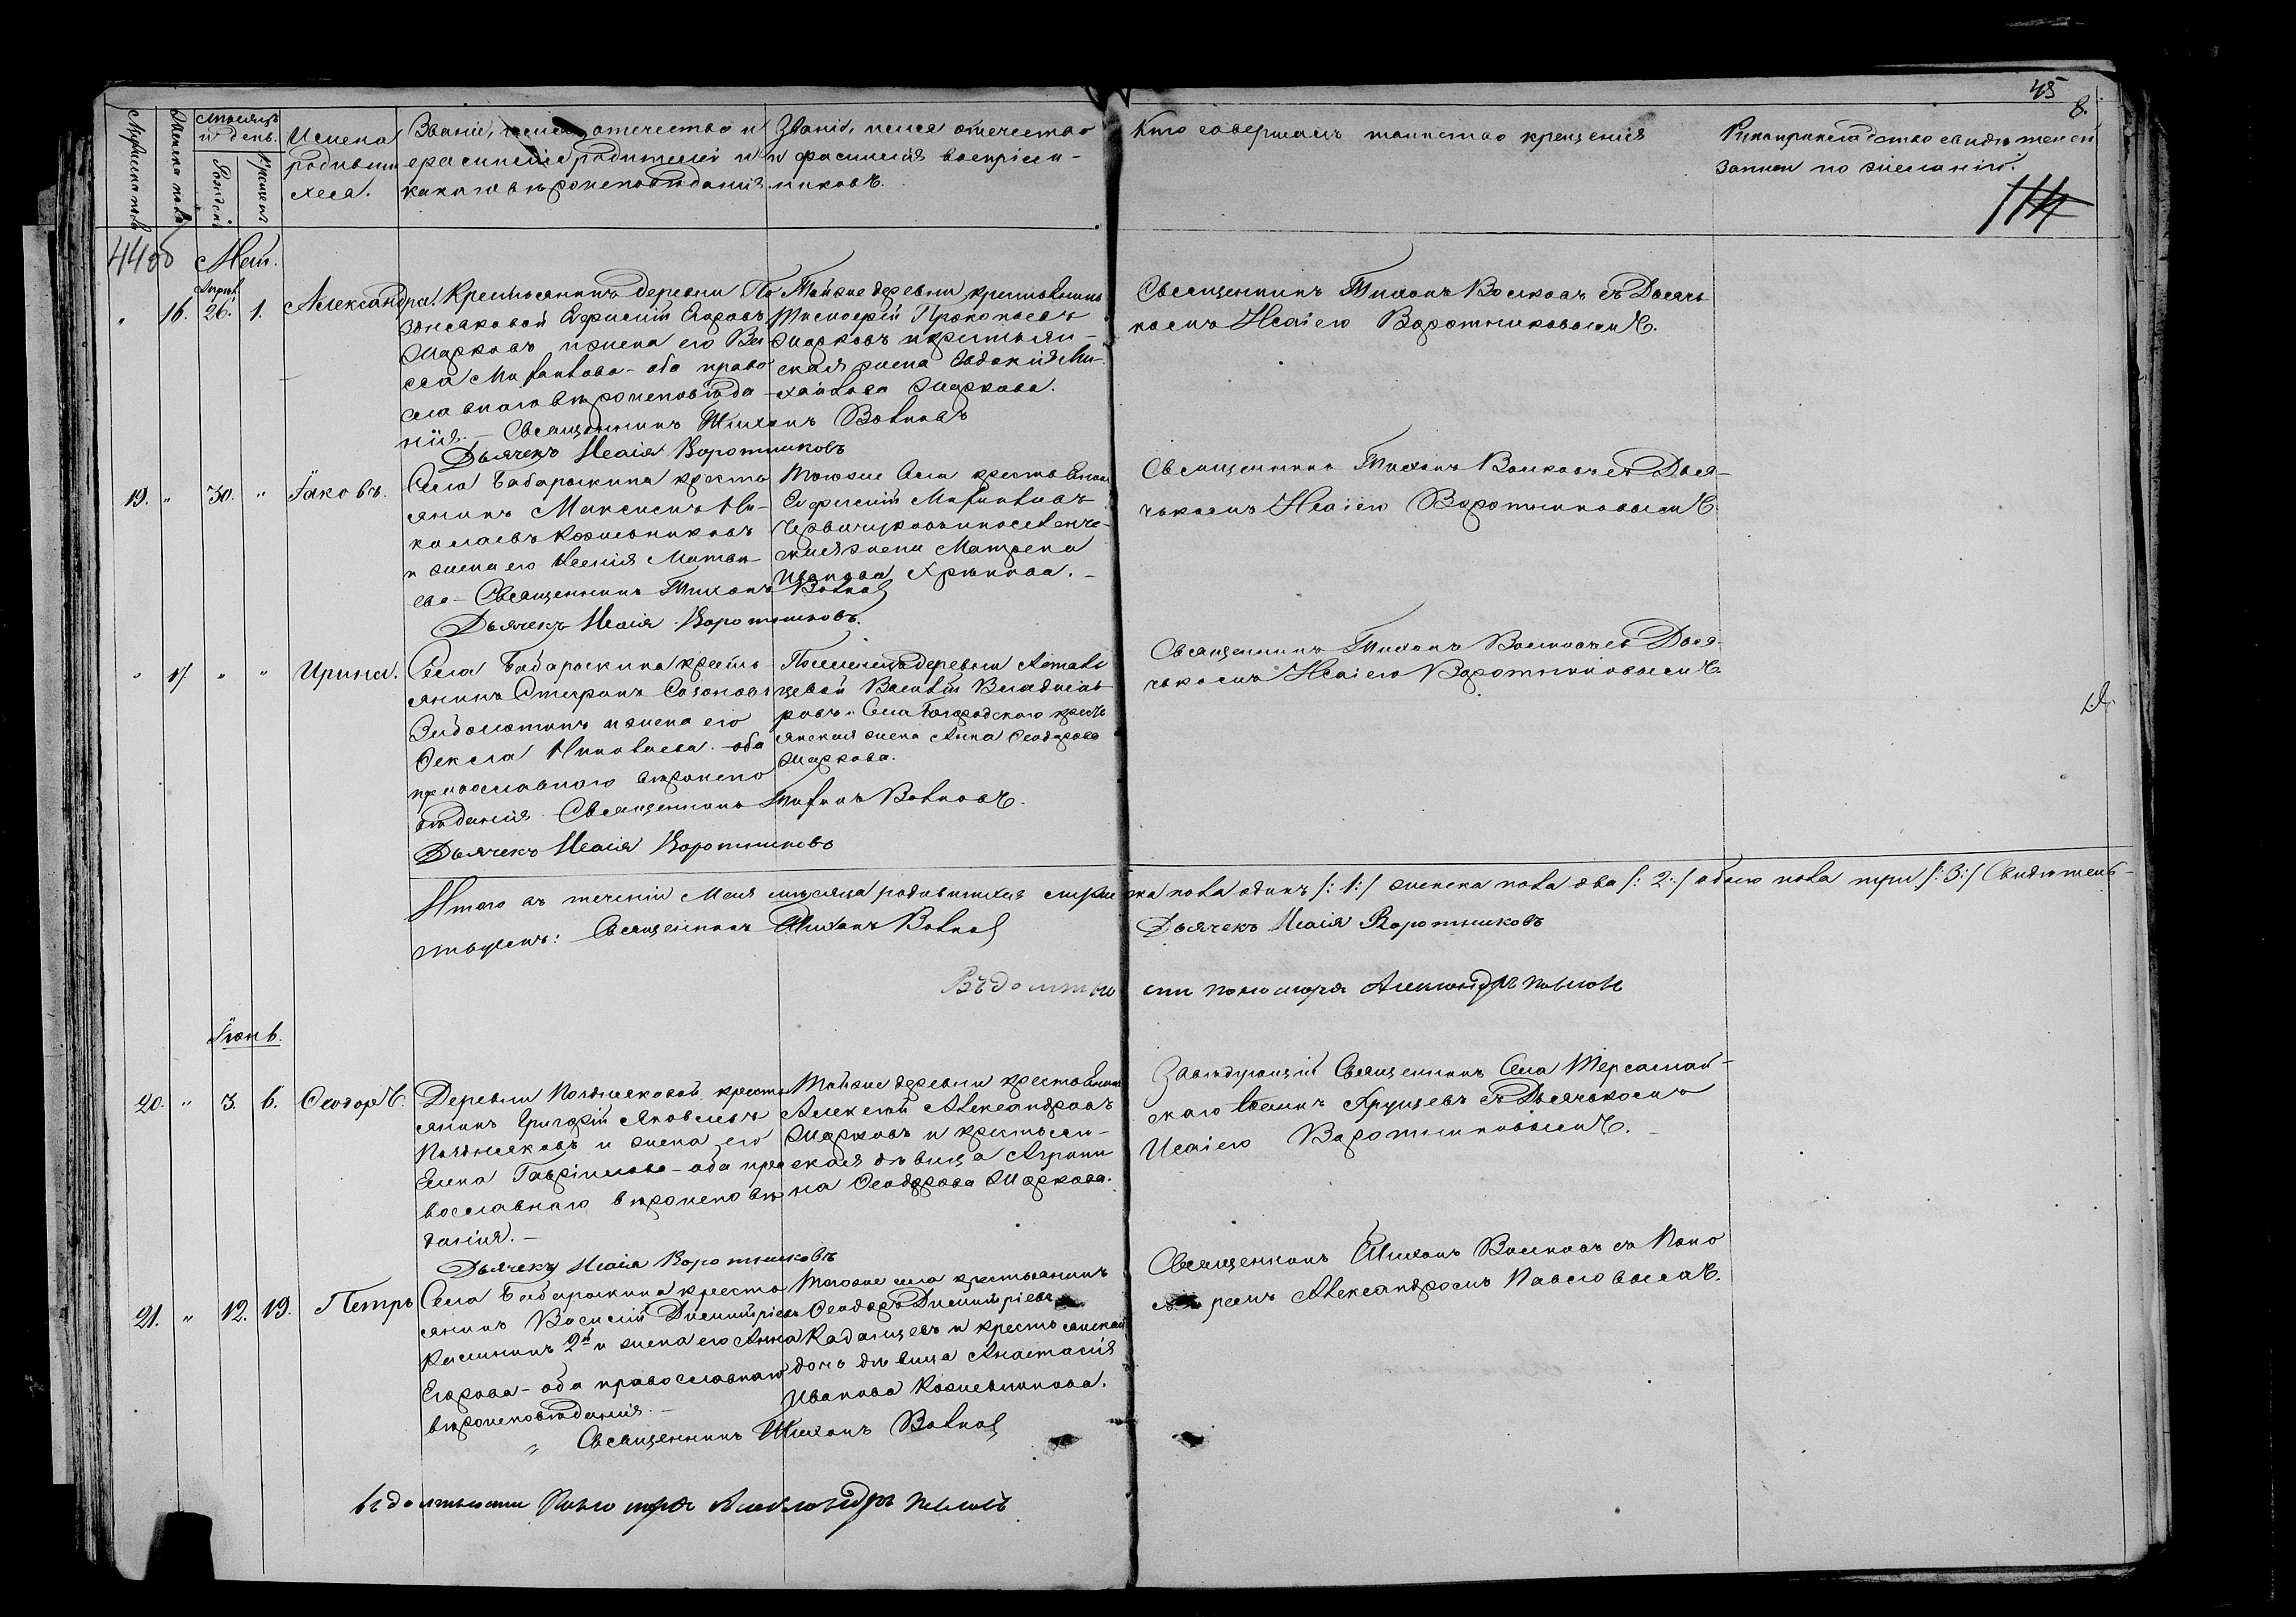 45
8.
Мужеска пола
Женска пола
Мѣсяцъ
и день.
Рожденія
Крещенія
Имена
родивших
ся.
Званіе, имя, отечество и
фамилія родителей и
какаго вѣроисповѣданія.
Званіе, имя отечество
и фамилія воспріем-
никовъ.
Кто совершалъ таинство крещенія
Рукоприкладство свидѣтелей
записи по желанію.
114
44об
Маій.
Апрѣл.
" 16. 26. 1. Александра.
Крестьянинъ деревни По
здняковой Ефимій Егоровъ
Марковъ и жена его Ва
сса Михаилова - оба право
славнаго вѣроисповѣда
нія. - Священникъ Тихонъ Волковъ
Дьячекъ Исаія Воротниковъ
Тойже деревни крестьянинъ
Тимоѳей Прокопьевъ
Марковъ и крестьян-
ская жена Евдокія Ми-
хайлова Маркова.
Священникъ Тихонъ Волковъ съ Дьяч
комъ Исаіею Воротниковымъ.
19. " 30. " Іаковъ.
Села Бабарыкина кресть
янинъ Максимъ Ни-
колаевъ Кожевниковъ
и жена его Ксенія Матвѣ
ева - Священникъ Тихонъ Волковъ
Дьячекъ Исаія Воротниковъ.
Тогоже села крестьянинъ
Ефимій Михаиловъ
жена Матрена
Иванова
Священникъ Тихонъ Волковъ съ Дья-
чькомъ Исаіею Воротниковымъ.
" 17 " " Ирина.
Села Бабарыкина кресть
янинъ Стефанъ Созоновъ
и жена его
Ѳекла Николаева - оба
православнаго вѣроиспо
вѣданія Священникъ Тихонъ Волковъ.
Дьячекъ Исаія Воротниковъ
деревни
Василій Владимі
ровъ. Села Богородского кресть
янская жена Анна Ѳеодорова
Маркова.
Священникъ Тихонъ Волковъ съ Дья-
чькомъ Исаіею Воротниковымъ.
Итого въ теченіи Мая мѣсяца родившихся муже
ска пола одинъ /: 1:/ женска пола два /: 2:/ обоего пола три /: 3:/ Свидѣтель-
ствуемъ: Священникъ Тихонъ Волковъ
Дьячекъ Исаія Воротниковъ
Въ должно
сти пономаря Александръ Павловъ
Іюнь.
20. " 3. 6. Ѳеодоръ.
Деревни Поздняковой кресть
янинъ Григорій Яковлевъ
Поздняковъ и жена его
Елена Гавріилова - оба пра
вославнаго вѣроисповѣ
данія. -
Дьячекъ Исаія Воротниковъ
Тойже деревни крестьянинъ
Алексѣй Александровъ
Марковъ и крестьян-
ская дѣвица Агрипи
на Ѳеодорова Маркова.
Завѣдующій Священникъ Села Терсамай-
скаго съ Дьячькомъ
Исаіею Воротниковымъ. -
21. " 12. 19. Петръ
Села Бабарыкина кресть
янинъ Василій Димитріевъ
Калининъ 2й и жена его Анна
Егорова - оба православнаго
вѣроисповѣданія. -
" Священникъ Тихонъ Волковъ
Тогоже села крестьянинъ
Ѳеодоръ Димитріевъ
Кадашевъ и крестьянская
дочь дѣвица Анастасія
Иванова Кожевникова.
Священникъ Тихонъ Волковъ съ Поно
маремъ Александромъ Павловымъ.
въ должности Пономаря Александръ Павловъ